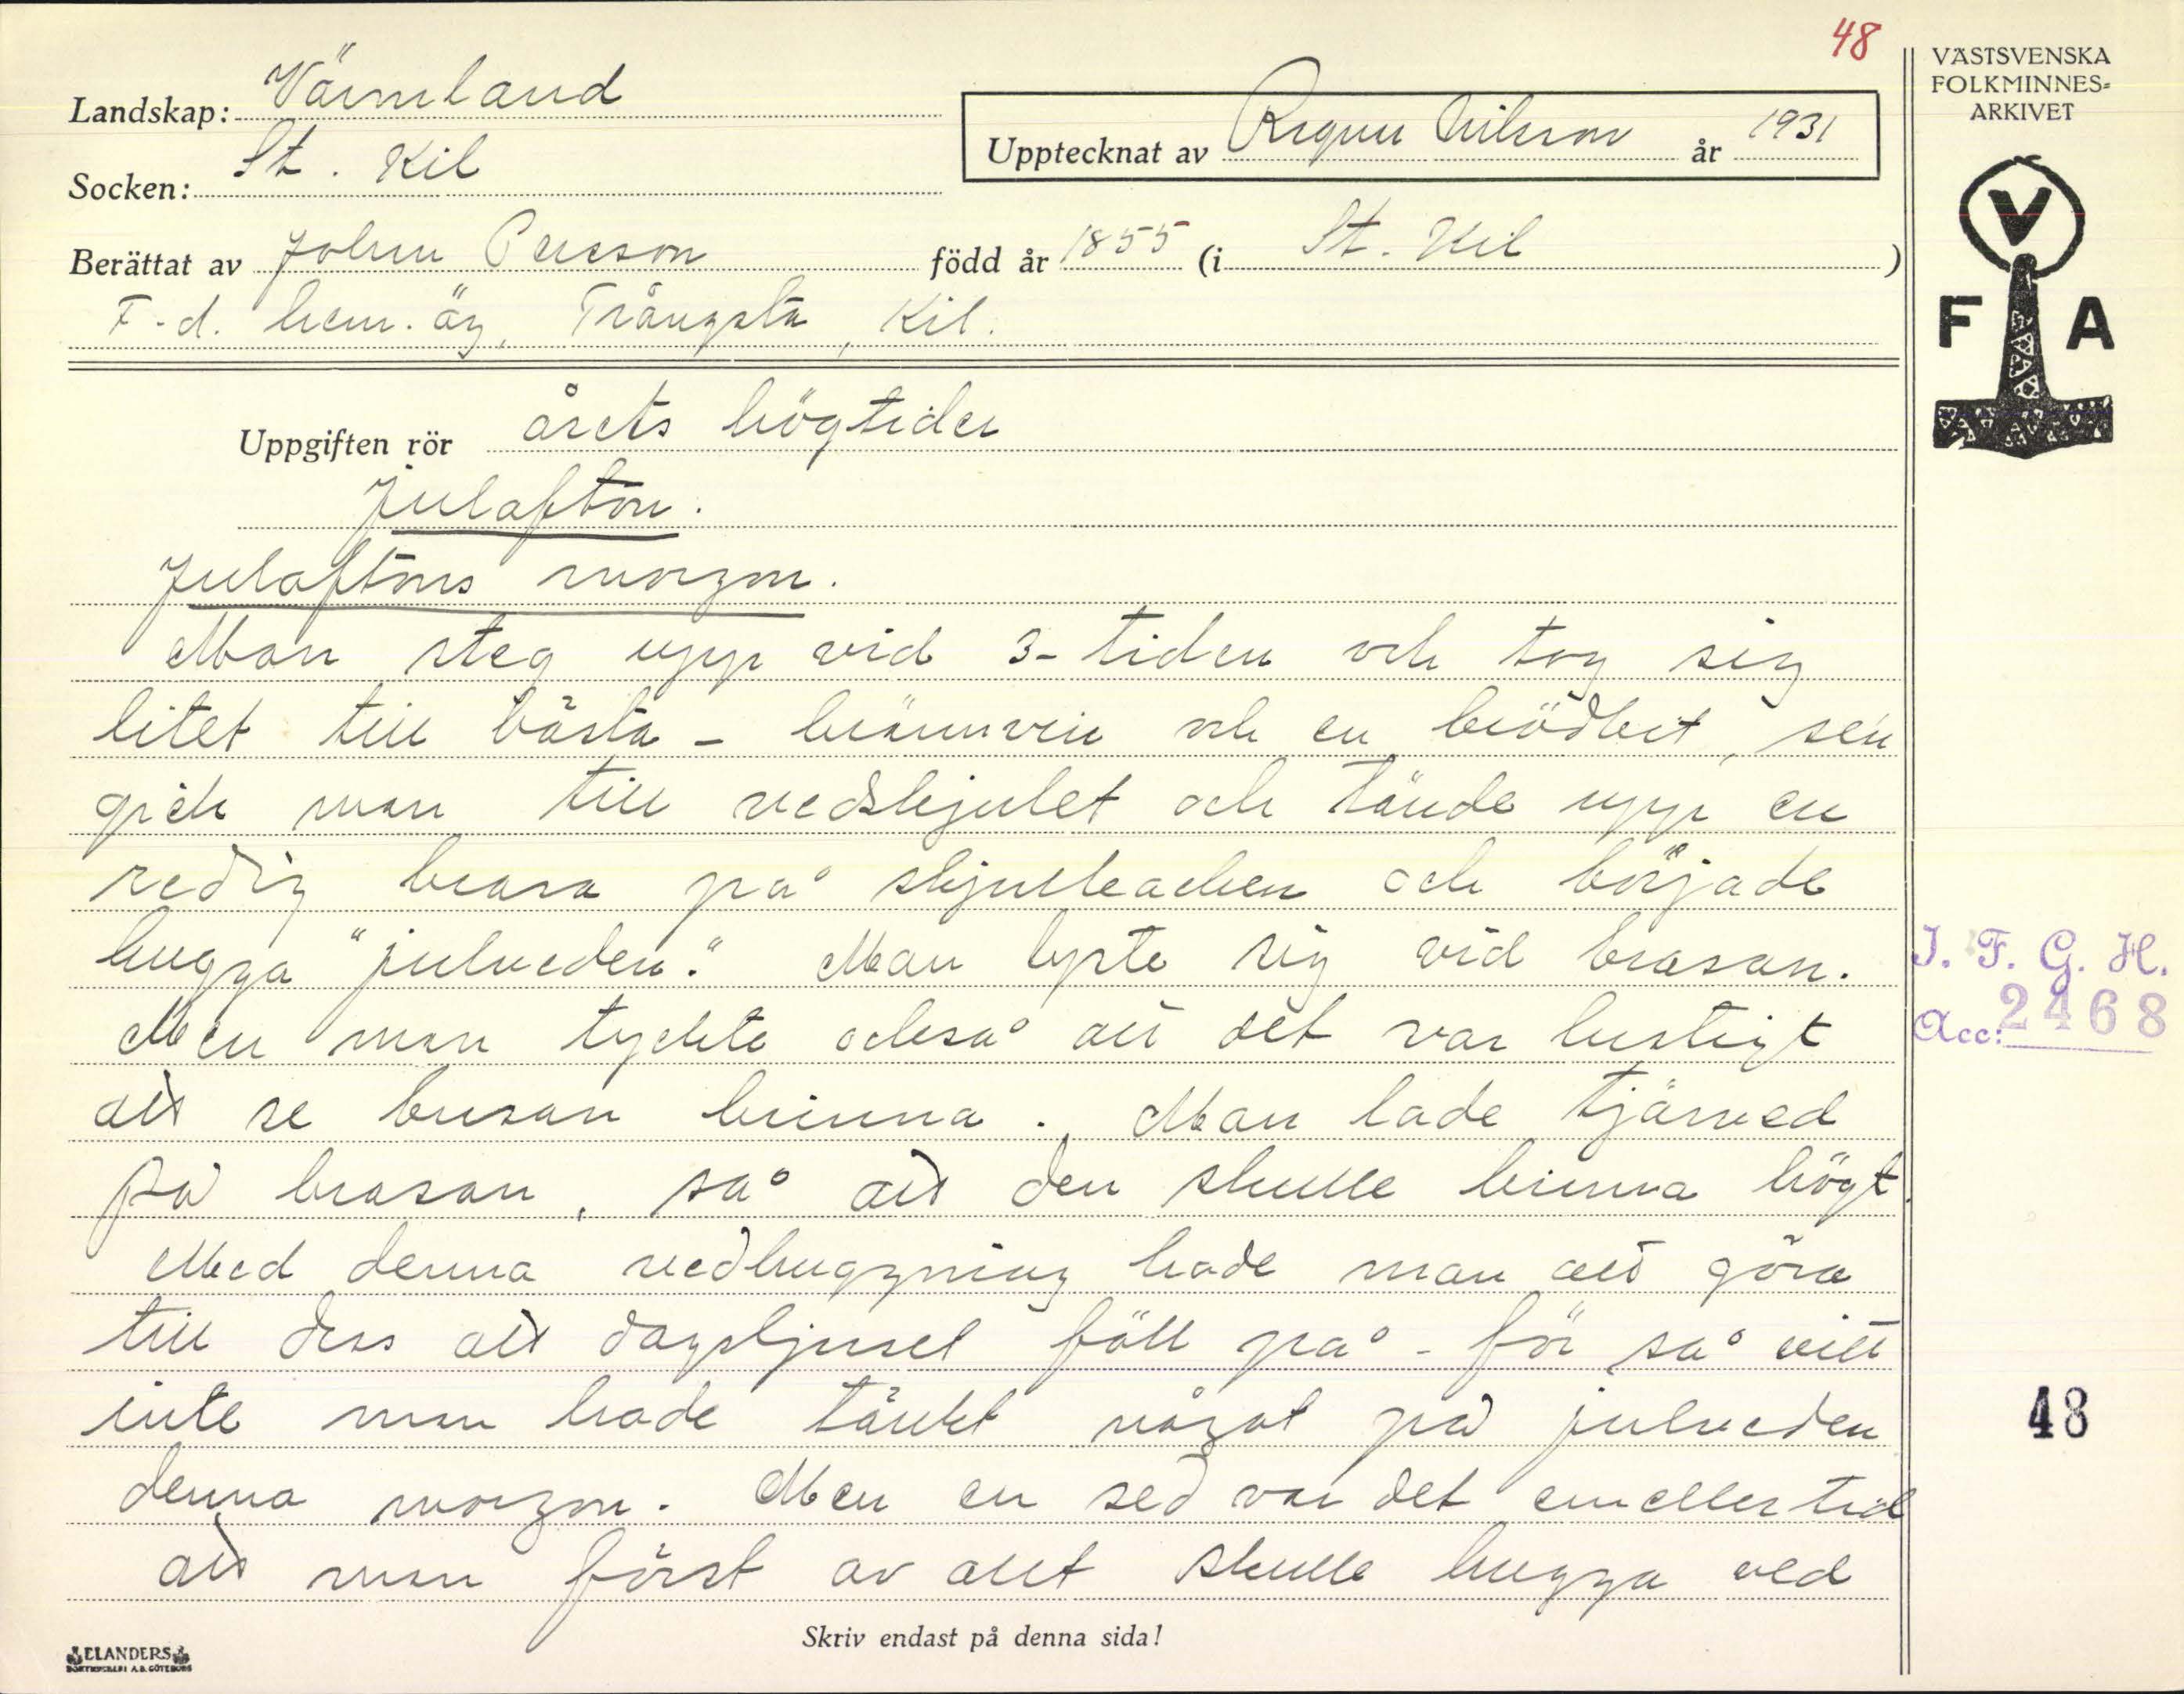 48
Landskap: Värmland
Socken: St. Kil
Upptecknat av Ragnar Nilsson år 1931
Berättat av Johan Persson född år 1855 (i St. Kil)
F.d. hem. äg, Trångsta, Kil.
VÄSTSVENSKA
FOLKMINNES-
ARKIVET
V
F A
Uppgiften rör årets högtider
Julafton.
Julaftons morgon.
Man steg upp vid 3-tiden och tog sig
litet till bästa - brännvin och en brödbit, sen
gick man till vedskjulet och tände upp en
redig brasa på skjulbacken och började
hugga "julveden". Man lyste sig vid brasan.
Men man tyckte också att det var lustigt
att se brasan brinna. Man lade tjärved
på brasan, så att den skulle brinna högt.
Med denna vedhuggning hade man att göra
till dess att dagsljuset föll på - för så vitt
inte man hade tänkt något på julveden
denna morgon. Men en sed var det emellertid
att man först av allt skulle hugga ved
I. F. G. H.
Acc: 2468
48
Skriv endast på denna sida!
ELANDERS
BOKTRYCKERI A.B. GÖTEBORG